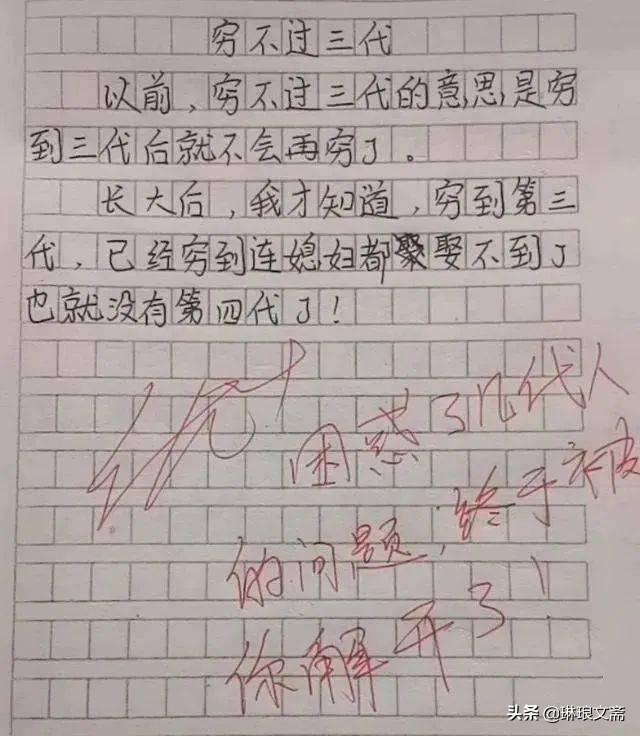 穷不过三代
以前,穷不过三代的意思是穷
到三代后就不会再穷了。
长大后,我才知道,穷到第三
代,已经穷到连媳妇都娶不到了
也就没有第四代了!
优+
困惑了几代人
的问题,终于被
你解开了!
头条@琳琅文斋